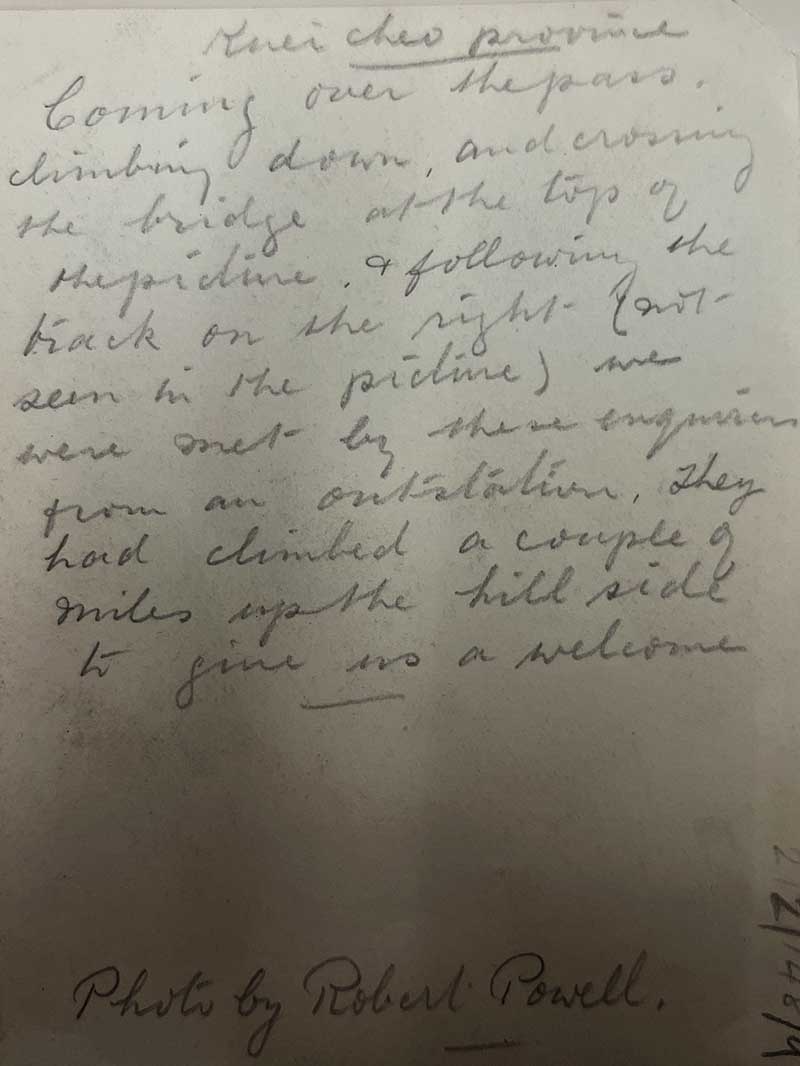 Kuei cheo province
Coming over the pass.
climbing down, and crossing
the bridge at the top of
the picture, & following the
track on the right (not
seen in the picture) we
were met by these enquirers
from an outstation. They
had climbed a couple of
miles up the hill side
to give us a welcome
Photo by Robert Powell.